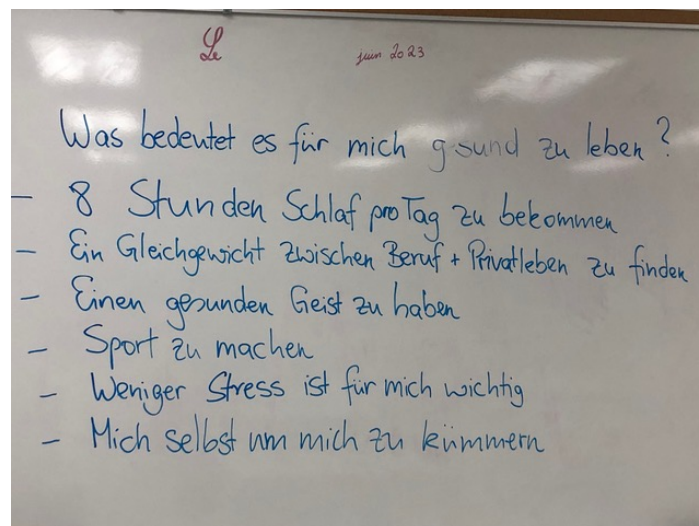 Le juin 2023
Was bedeutet es für mich gesund zu leben?
- 8 Stunden Schlaf pro Tag zu bekommen
- Ein Gleichgewicht zwischen Beruf + Privatleben zu finden
- Einen gesunden Geist zu haben
- Sport zu machen
- Weniger Stress ist für mich wichtig
- Mich selbst um mich zu kümmern